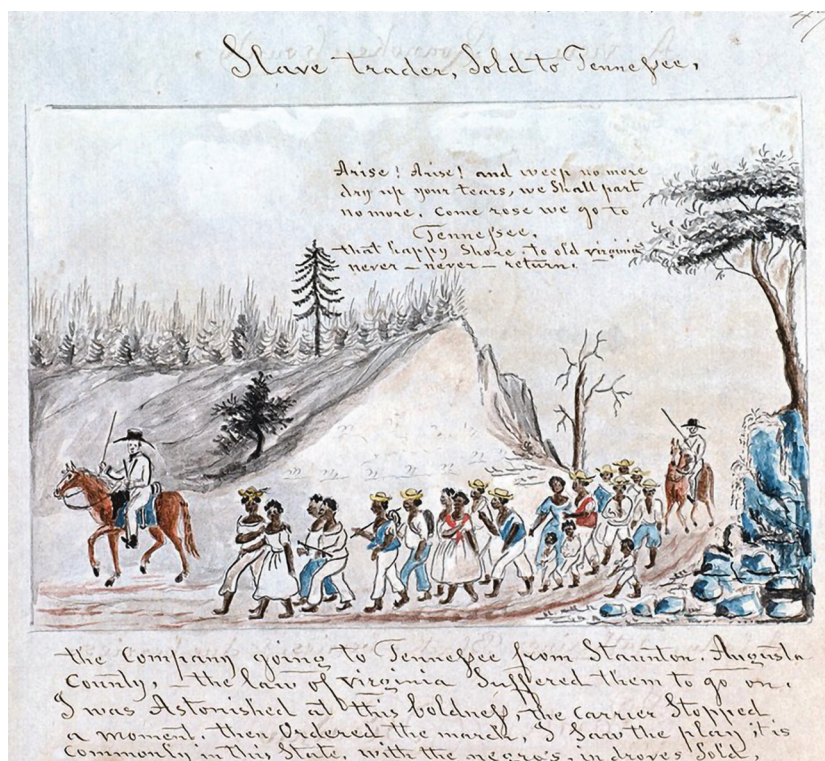 47
Slave trader, Sold to Tennessee,
Arise! Arise! and weep no more
dry up your tears, we Shall part
no more. Come rose we go to
Tennessee,
that happy Shore, to old virginia
never – never – return.
the Company going to Tennessee from Staunton. Augusta
County, – the law of virginia Suffered them to go on.
I was Astonished at this boldness, the carrier Stopped
a moment, then Ordered the march, I Saw the play it is
Commonly in this State, with the negro's in droves Sold,